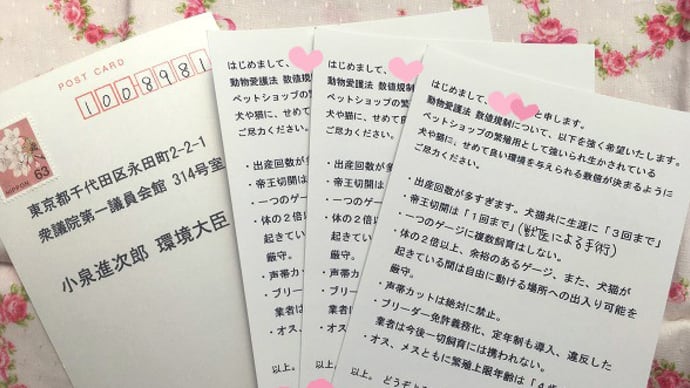 POST CARD
1008981
NIPPON 63
東京都千代田区永田町2-2-1
衆議院第一議員会館 314号室
小泉進次郎 環境大臣
はじめまして、
動物愛護法 数値規制
ペットショップの繁
犬や猫に、せめて良
ご尽力ください。
・出産回数が
・帝王切開は
・一つのゲー
・体の2倍
起きてい
厳守。
・声帯カッ
・ブリー
業者は
・オス、
以上。
はじめまして、
動物愛護法 数値規
ペットショップの繁
犬や猫に、せめて
ご尽力ください。
・出産回数が
・帝王切開は
・一つのゲー
・体の2倍以
起きている
厳守。
・声帯カッ
・ブリー
業者は
・オス、
以上。
はじめまして、 と申します。
動物愛護法 数値規制について、以下を強く希望いたします。
ペットショップの繁殖用として強いられ生かされている
犬や猫に、せめて良い環境を与えられる数値が決まるように
ご尽力ください。
・出産回数が多すぎます。犬猫共に生涯に「3回まで」
・帝王切開は「1回まで」(獣医による手術)
・一つのゲージに複数飼育はしない。
・体の2倍以上、余裕のあるゲージ、また、犬猫が
起きている間は自由に動ける場所への出入り可能を
厳守。
・声帯カットは絶対に禁止。
・ブリーダー免許義務化、定年制も導入、違反した
業者は今後一切飼育には携われない。
・オス、メスともに繁殖上限年齢は「4
以上。